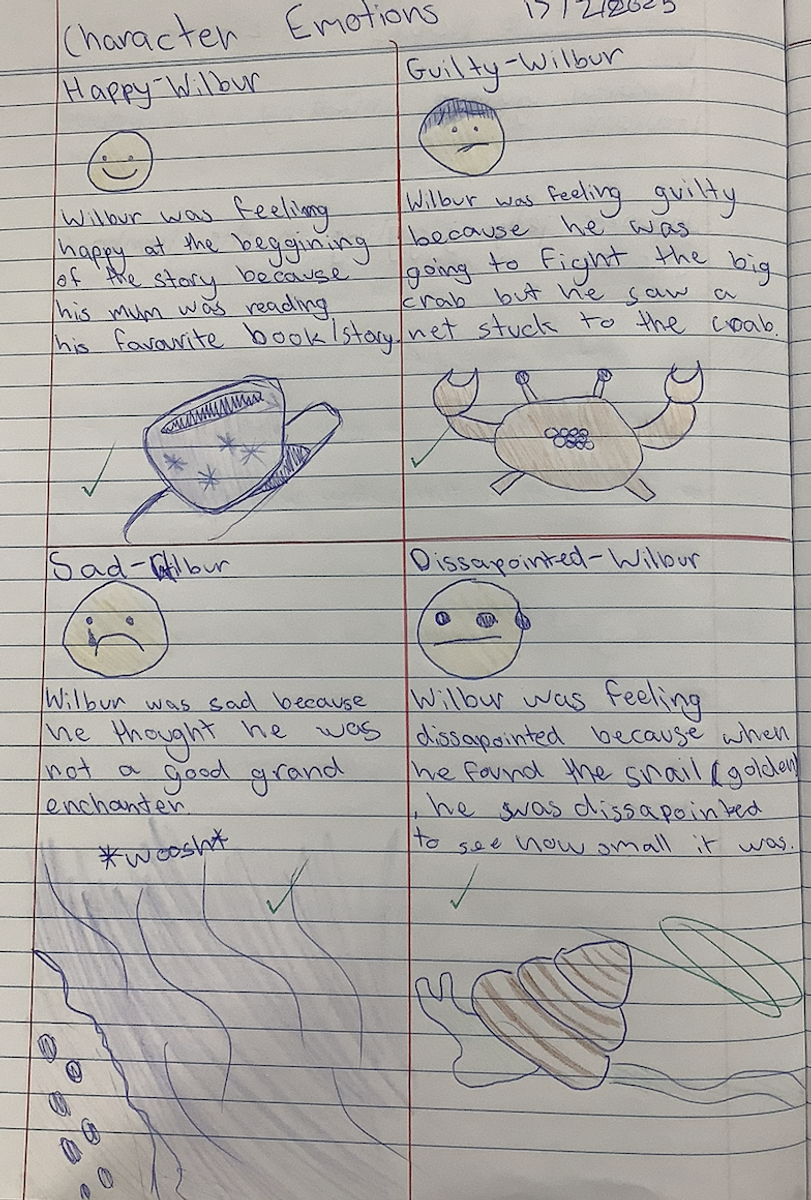 Character Emotions
Happy-Wilbur
Wilbur was feeling
happy at the beggining
of the story because
his mum was reading
his favourite book/story.
Guilty-Wilbur
Wilbur was feeling guilty
because he was
going to fight the big
crab but he saw a
net stuck to the crab.
Sad-Wilbur
Wilbur was sad because
he thought he was
not a good grand
enchanter.
*woosh*
Dissapointed-Wilbur
Wilbur was feeling
dissapointed because when
he found the snail (golden)
, he was dissapointed
to see how small it was.